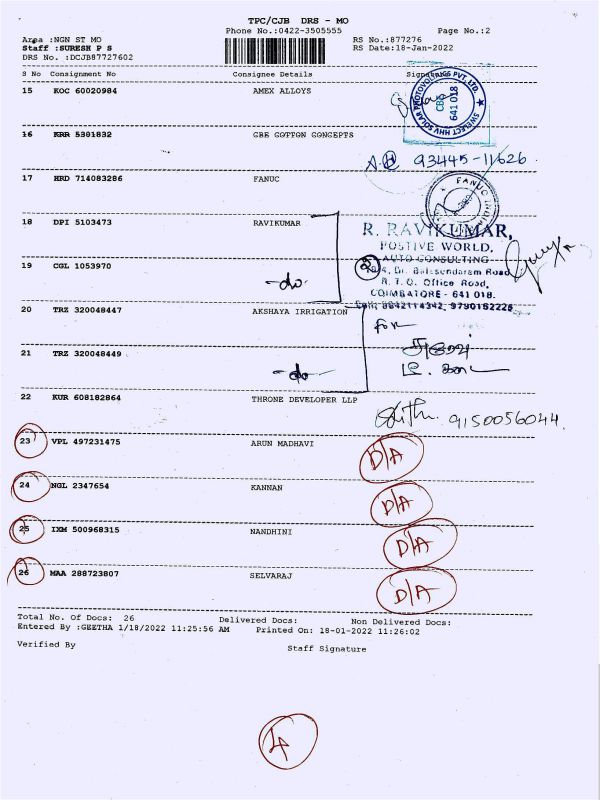 TPC/CJB DRS - MO
Phone No.:0422-3505555 Page No.:2
Area :NGN ST MO RS No.:877276
Staff :SURESH P S RS Date:18-Jan-2022
DRS No. :DCJB87727602
S No Consignment No Consignee Details Signature
15 KOC 60020984 AMEX ALLOYS
SWELECT HHV SOLAR PHOTOVOLTAICS PVT. LTD.
CBE
641 018
16 KRR 5301832 CBE COTTON CONCEPTS
93445-11626
17 HRD 714083286 FANUC
FANUC INDIA
18 DPI 5103473 RAVIKUMAR
R. RAVIKUMAR,
POSTIVE WORLD,
AUTO CONSULTING
19 CGL 1053970
-do-
Dr. Balasundaram Road
R. T. O. Office Road,
COIMBATORE - 641 018.
Cell: 9842114342, 9790162228
20 TRZ 320048447 AKSHAYA IRRIGATION
for
21 TRZ 320048449
-do-
22 KUR 608182864 THRONE DEVELOPER LLP
9150056044.
23 VPL 497231475 ARUN MADHAVI
D/A
24 NGL 2347654 KANNAN
D/A
25 IXM 500968315 NANDHINI
D/A
26 MAA 288723807 SELVARAJ
D/A
Total No. Of Docs: 26 Delivered Docs: Non Delivered Docs:
Entered By :GEETHA 1/18/2022 11:25:56 AM Printed On: 18-01-2022 11:26:02
Verified By Staff Signature
4